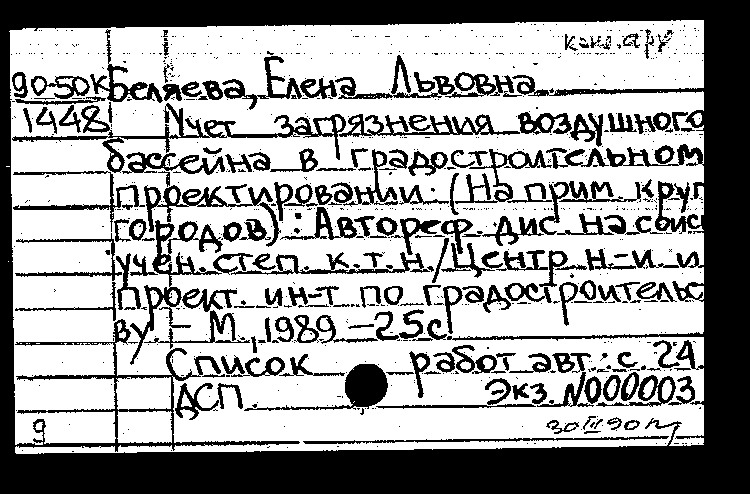 90-50К Беляева, Елена Львовна
1448 Учет загрязнения воздушного
бассейна в градостроительном
проектировании: (На прим. круп
городов): Автореф. дис. на соиск
учен. степ. к.т.н./Центр н.-и. и
проект. ин-т по градостроительс
ву. - М., 1989 - 25с.
Список работ авт.: с. 24.
ДСП. Экз. N000003
9 30 III 90